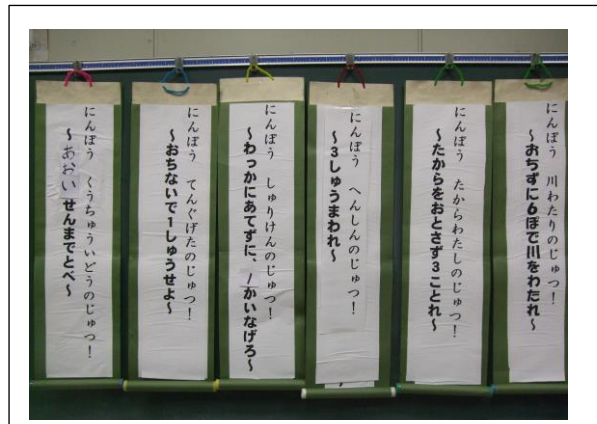 にんぽう　川わたりのじゅつ！
～おちずに6ぽで川をわたれ～
にんぽう　たからわたしのじゅつ！
～たからをおとさず3ことれ～
にんぽう　へんしんのじゅつ！
～3しゅうまわれ～
にんぽう　しゅりけんのじゅつ！
～わっかにあてずに、1かいなげろ～
にんぽう　てんぐげたのじゅつ！
～おちないで1しゅうせよ～
にんぽう　くうちゅういどうのじゅつ！
～あおい せんまでとべ～